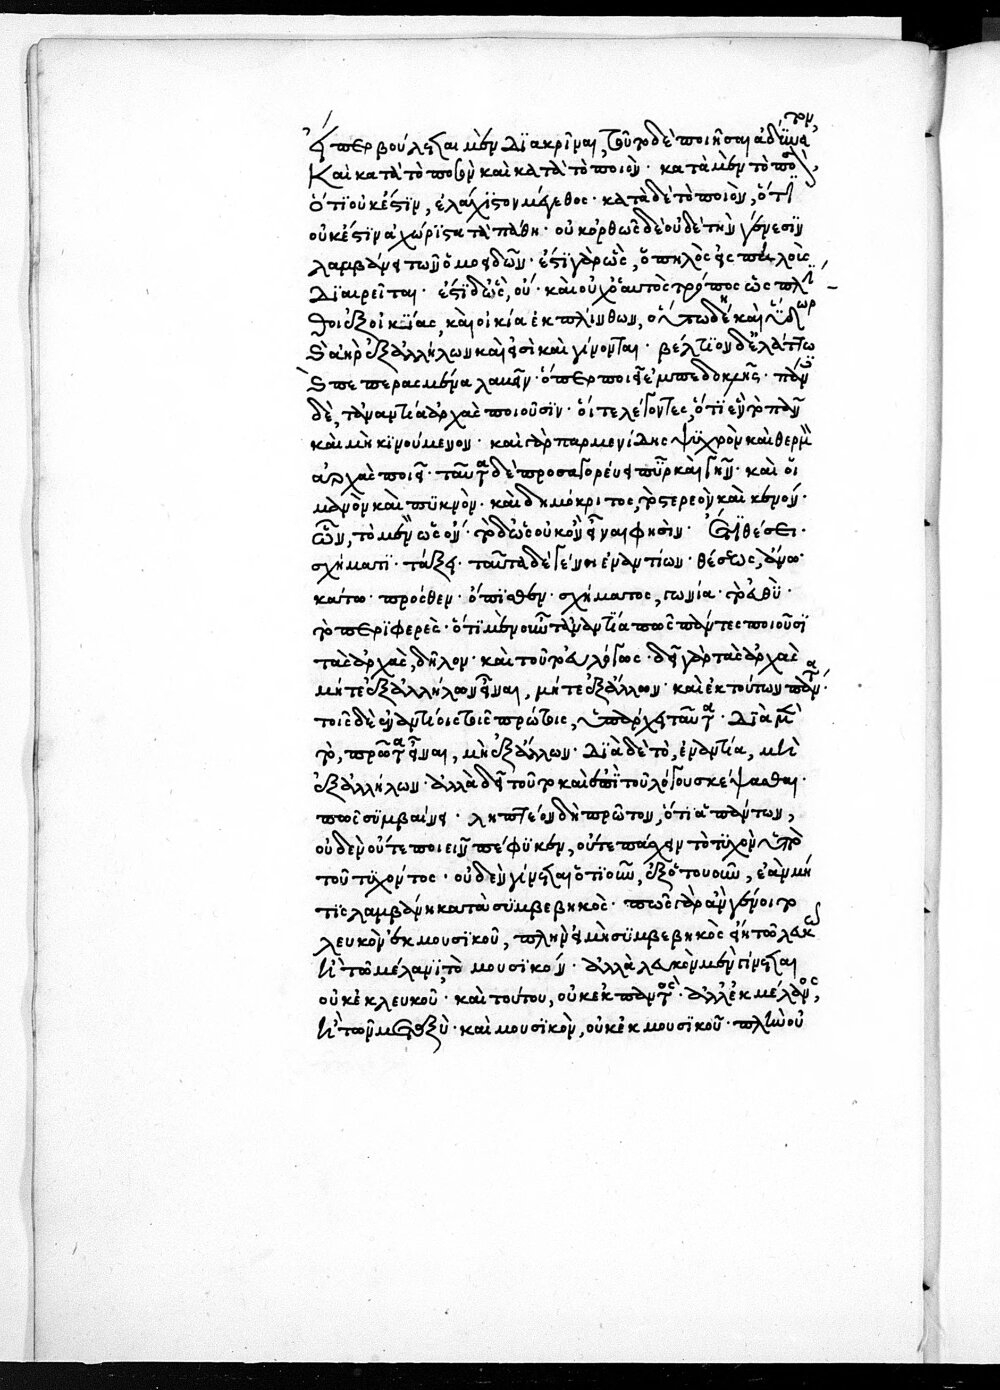 εἴπερ βούλεται μὲν διακρῖναι, τοῦτο δὲ ποιῆσαι ἀδύνατον,
καὶ κατὰ τὸ ποσὸν καὶ κατὰ τὸ ποιόν· κατὰ μὲν τὸ ποσόν,
ὅτι οὐκ ἔστιν, ἐλάχιστον μέγεθος· κατὰ δὲ τὸ ποιὸν, ὅτι
οὐκ ἔστιν ἀχώριστα τὰ πάθη· οὐκ ὀρθῶς δὲ οὐδὲ τὴν γένεσιν
λαμβάνει τῶν ὁμοειδῶν· ἔστι γὰρ ὡς, ὁ πηλὸς εἰς πηλοὺς
διαιρεῖται· ἔστι δ' ὡς, οὔ· καὶ οὐχ ὁ αὐτὸς τρόπος ὡς πλίν
θοι ἐξ οἰκίας, καὶ οἰκία ἐκ πλίνθων, οὕτω δὴ καὶ ὕδωρ
καὶ ἀὴρ ἐξ ἀλλήλων καὶ εἰσὶ καὶ γίνονται· βέλτιον δ' ἐλάττω
καὶ πεπερασμένα λαβεῖν· ὅπερ ποιεῖ ἐμπεδοκλῆς· πάντες
δὲ, τἀναντία ἀρχὰς ποιοῦσιν· οἵ τε λέγοντες, ὅτι ἓν τὸ πᾶν
καὶ μὴ κινούμενον· καὶ γὰρ παρμενίδης ψυχρὸν καὶ θερμὸν
ἀρχὰς ποιεῖ· ταῦτα δὲ προσαγορεύει πῦρ καὶ γῆν· καὶ οἱ
μανὸν καὶ πυκνὸν· καὶ δημόκριτος, τὸ στερεὸν καὶ κενόν·
ὧν, τὸ μὲν ὡς ὄν· τὸ δ' ὡς οὐκ ὂν εἶναι φησὶν· ἔτι θέσει·
σχήματι· τάξει· ταῦτα δὲ γένη ἐναντίων· θέσεως, ἄνω
κάτω· πρόσθεν· ὄπισθεν· σχήματος, γωνία· τὸ εὐθὺ·
τὸ περιφερὲς· ὅτι μὲν οὖν τἀναντία πως πάντες ποιοῦσι
τὰς ἀρχὰς, δῆλον· καὶ τοῦτο εὐλόγως· δεῖ γὰρ τὰς ἀρχὰς
μήτε ἐξ ἀλλήλων εἶναι, μήτε ἐξ ἄλλων· καὶ ἐκ τούτων πάντα·
τοῖς δὲ ἐναντίοις τοῖς πρώτοις, ὑπάρχει ταῦτα· διὰ μὲν
τὸ, πρῶτα εἶναι, μὴ ἐξ ἄλλων· διὰ δὲ τὸ, ἐναντία, μὴ
ἐξ ἀλλήλων· ἀλλὰ δεῖ τοῦτο καὶ ἐπὶ τοῦ λόγου σκέψασθαι·
πῶς συμβαίνει· ληπτέον δὴ πρῶτον, ὅτι ἁπάντων,
οὐδὲν οὔτε ποιεῖν πέφυκεν, οὔτε πάσχειν τὸ τυχὸν ὑπὸ
τοῦ τυχόντος· οὐδὲν γίνεται ὁτιοῦν, ἐξ ὁτουοῦν, ἐὰν μή
τις λαμβάνῃ κατὰ συμβεβηκὸς· πῶς γὰρ ἂν γένοιτο
λευκὸν ἐκ μουσικοῦ, πλὴν εἰ μὴ συμβεβηκὸς εἴη τῷ λευκῷ
ἢ τῷ μέλανι, τὸ μουσικόν· ἀλλὰ λευκὸν μὲν γίνεται
οὐκ ἐκ λευκοῦ· καὶ τούτου, οὐκ ἐκ παντὸς· ἀλλ' ἐκ μέλανος,
ἢ τῶν μεταξὺ· καὶ μουσικὸν, οὐκ ἐκ μουσικοῦ· πλὴν οὐ